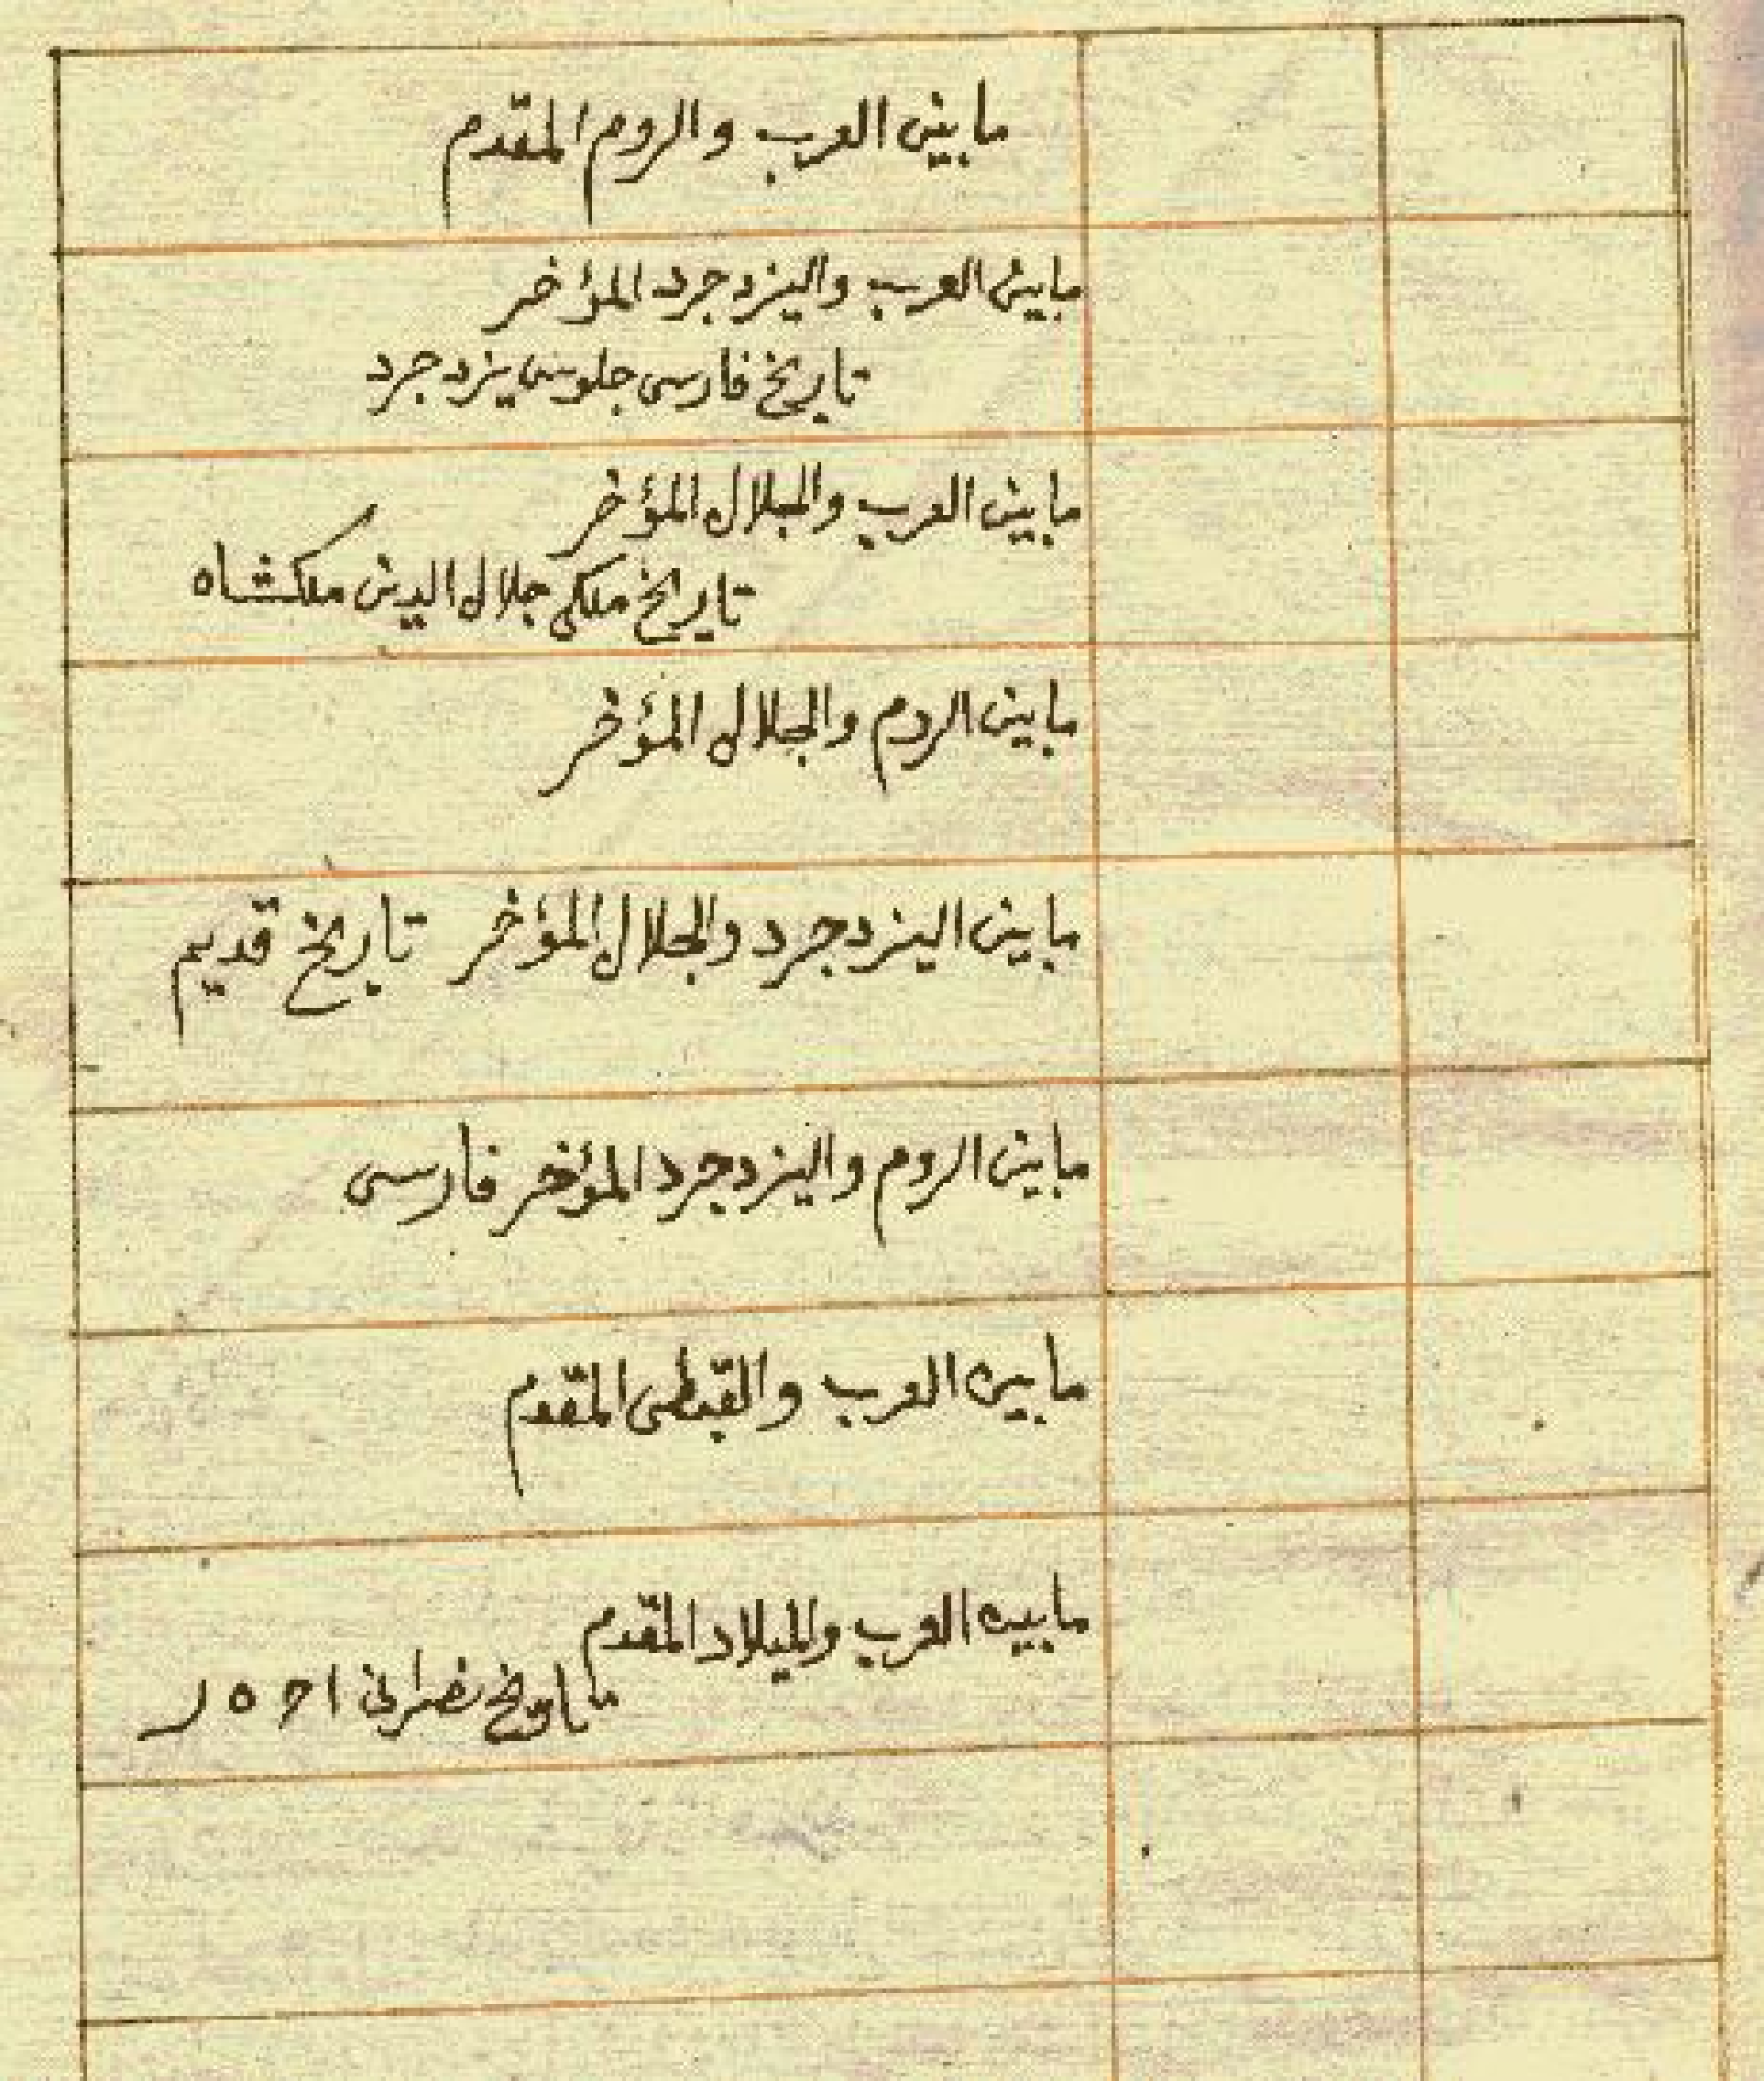 ما بين العرب والروم المقدم
ما بين العرب واليزدجرد المؤخر
تاريخ فارسى جلوس يزدجرد
ما بين العرب والجلال المؤخر
تاريخ ملكى جلال الدين ملكشاه
ما بين الروم والجلال المؤخر
ما بين اليزدجرد والجلال المؤخر تاريخ قديم
ما بين الروم واليزدجرد المؤخر فارسى
ما بين العرب والقبطى المقدم
ما بين العرب والميلاد المقدم
تاريخ نصرانى